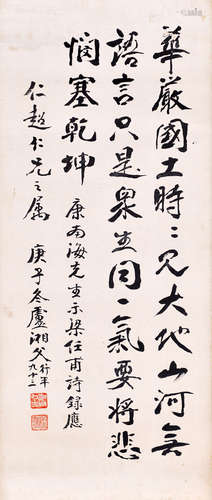 華嚴國土時〻見大地山河無
語言只是衆生同一氣要將悲
憫塞乾坤 康南海先生示梁任甫詩錄應
仁超仁兄之属 庚子冬盧湘父行年九十三